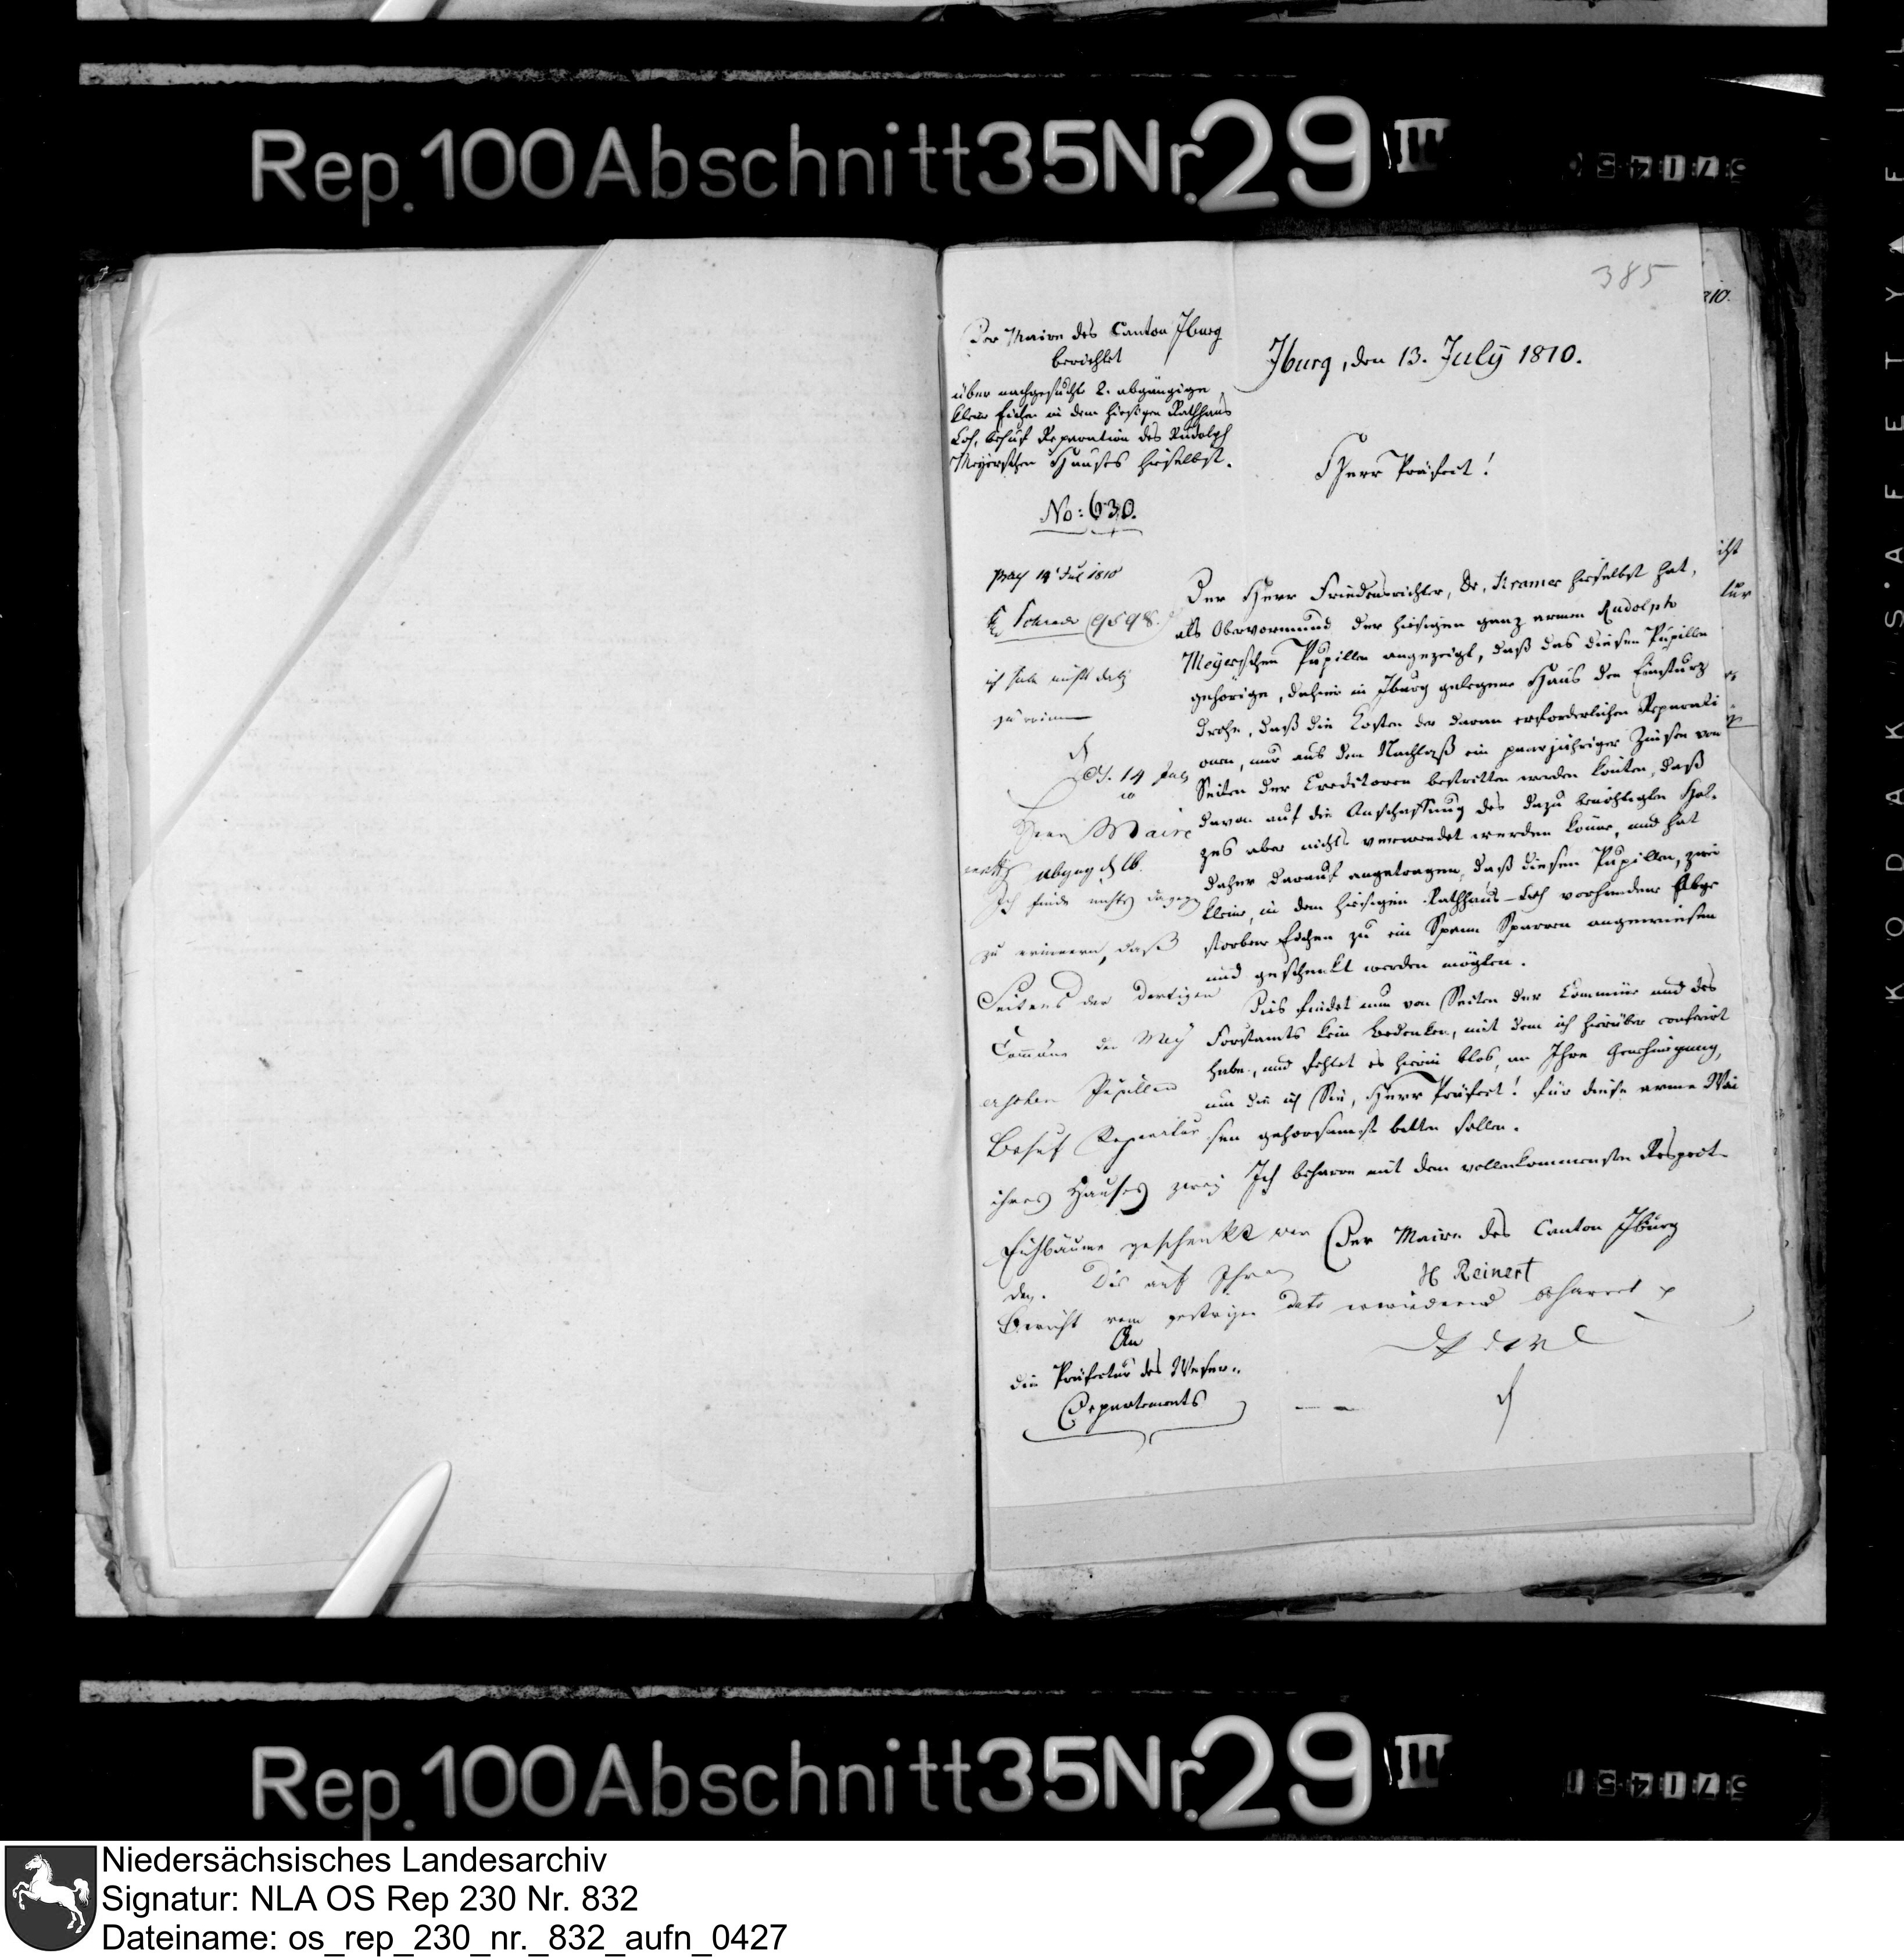 Rep. 100 Abschnitt 35 Nr. 29 III
385
Der Maire des Canton Jburg
berichtet
über nachgesuchte 2. abgängige
kleine Eichen in dem hiesigen Rathhaus
Loh, behuf Reparation des Rudolph
Meyerschen Hauses hieselbst.
No: 630.
Jburg, den 13. July 1810.
Herr Präfect!
Der Herr Friedensrichter, Dr. Kramer hieselbst hat,
als Obervormund der hiesigen ganz armen Rudolph
Meyerschen Pupillen angezeigt, daß das diesen Pupillen
gehörige, dahier in Jburg gelegene Haus den Einsturz
drohe, daß die Kosten der daran erforderlichen Reparati
onen, nur aus dem Nachlaß ein paarjähriger Zinsen von
Seiten der Creditoren bestritten werden könten, daß
davon auf die Anschaffung des dazu benöthigten Hol-
zes aber nichts verwendet werden könne, und hat
daher darauf angetragen, daß diesen Pupillen, zwei
kleine, in dem hiesigen Rathhaus-Loh vorhandene Abge
storbene Eichen zu ein Spann Sparren angewiesen
und geschenkt werden mögten.
Dies findet nun von Seiten der Commüne und des
Forstamts kein Bedenken, mit dem ich hierüber conferirt
habe, und fehlet es hierin blos, an Ihre Genehmigung,
um die ich Sie, Herr Präfect! für diese arme Wai
sen gehorsamst bitten sollen.
Ich beharre mit dem vollenkommensten Respect
Der Maire des Canton Jburg
H Reinert
14 Jul 1810
9598.
ich habe nichts dabey
zu erinnern
14 July
Herrn Maire
Ich finde nichts dagegen
zu erinnern, daß
Seitens der dortigen
Commune den Mey
erschen Pupillen
Behuf Reparatur
ihres Hauses zwey
Eichbäume geschenkt wer
den. Dis auf Ihren
Bericht vom gestrigen dato erwiedernd beharret
An
die Präfectur des Weser-
Departements
Rep. 100 Abschnitt 35 Nr. 29 III
Niedersächsisches Landesarchiv
Signatur: NLA OS Rep 230 Nr. 832
Dateiname: os_rep_230_nr._832_aufn_0427